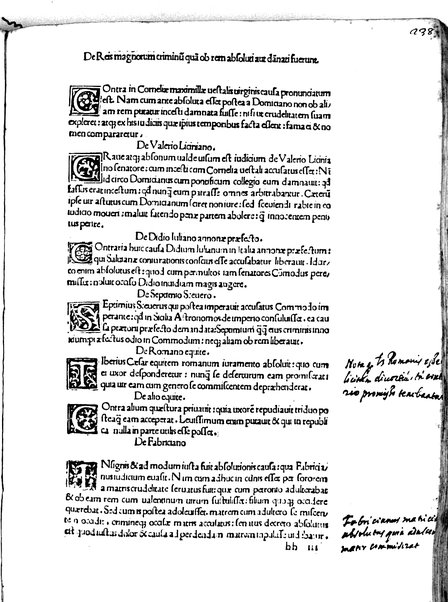 238
De Reis magnorum criminũ quã ob rem absoluti aut dãnati fuerunt.
COntra in Corneliæ maximillæ uestalis uirginis causa pronunciatum
est. Nam cum ante absoluta esset postea a Domiciano non ob ali-
am rem putatur incesti damnata fuisse: nisi ut crudelitatem suam
expleret: atq; ex his iudiciis quæ ipsius temporibus facta essent: fama ei & no
men compararetur.
De Valerio Liciniano.
GRaue atq; absonum ualde uisum est iudicium de Valerio Licinia
no senatore: cum incesti cum Cornelia uestali accusatus esset: Ni
id circo Domicianus cum pontificum collegio eum damnauit: qđ
fassus erat incestum: qđ nunq̃ eum patrasse omnes arbitrabantur. Cæterũ
ipse uir astutus cum Domicianum foret non iure: sed seuiendi rabie in eo
iudicio moueri: maluit fatendo pœnæ partem abolere: q̃ innocentem peni
tus perire.
De Didio Iuliano annonæ præfecto.
COntraria huic causa Didium Iulianum in Italia annonæ præfectum:
qui Saluianæ coniurationis conscius esse accusabatur liberauit. Idcir-
co enim absolutus est: quod cum permultos iam senatores Cõmodus pere-
misset: noluit odio inuidiam magis augere.
De Septimio Seuero.
SEptimius Seuerus qui postea imperauit accusatus Commodo im
perante: qđ in Sicilia Astronomos de imperio consuluisset. ea cau
sa prætorii præfecto demandata Septimium q̃q̃ eius criminis inno
idumpræfectus odio in Commodum: neq; aliam ob rem liberauit.
De Romano equite.
TIberius Cæsar equitem romanum iuramento absoluit: quo cum
ei uxor desponderetur: nunq̃ se deserturum eam promiserat:
quia ut eam cum genero se commiscentem depræhenderat.
De alio equite.
COntra alium quæstura priuauit: quia uxorẽ repudiauit triduo po
stea q̃ eam acceperat. Leuissimum enim putauit & qui in republi
ca nulla in parte utilis esse posset.
De Fabriciano
INsignis & ad modum iusta fuit absolutionis causa: qua Fabricia-
nus iudicium euasit. Nam cum adhuc in cunis esset per sororem
a matris crudelitate seruatus fuit: quæ cum petronio adulterabat
& ob eam rem cum ualentinum uirum sustulisset: filium quoq; occidere
quærebat. Sed cum is postea adoleuisset, matrem cum adultero se miscen-
tem occidit, crimineq; occisæ matris accusatus: senatus decreto absolutus
est quod iustus dolor & causa ad perdendam matrem impulisse uidebatur.
bb iii
Nota q̃ Romanis esse
licitũ diuortiũ
promisso tenebantur
Fabricianus matricida
absolutus quia adulteram
matrem commiserat